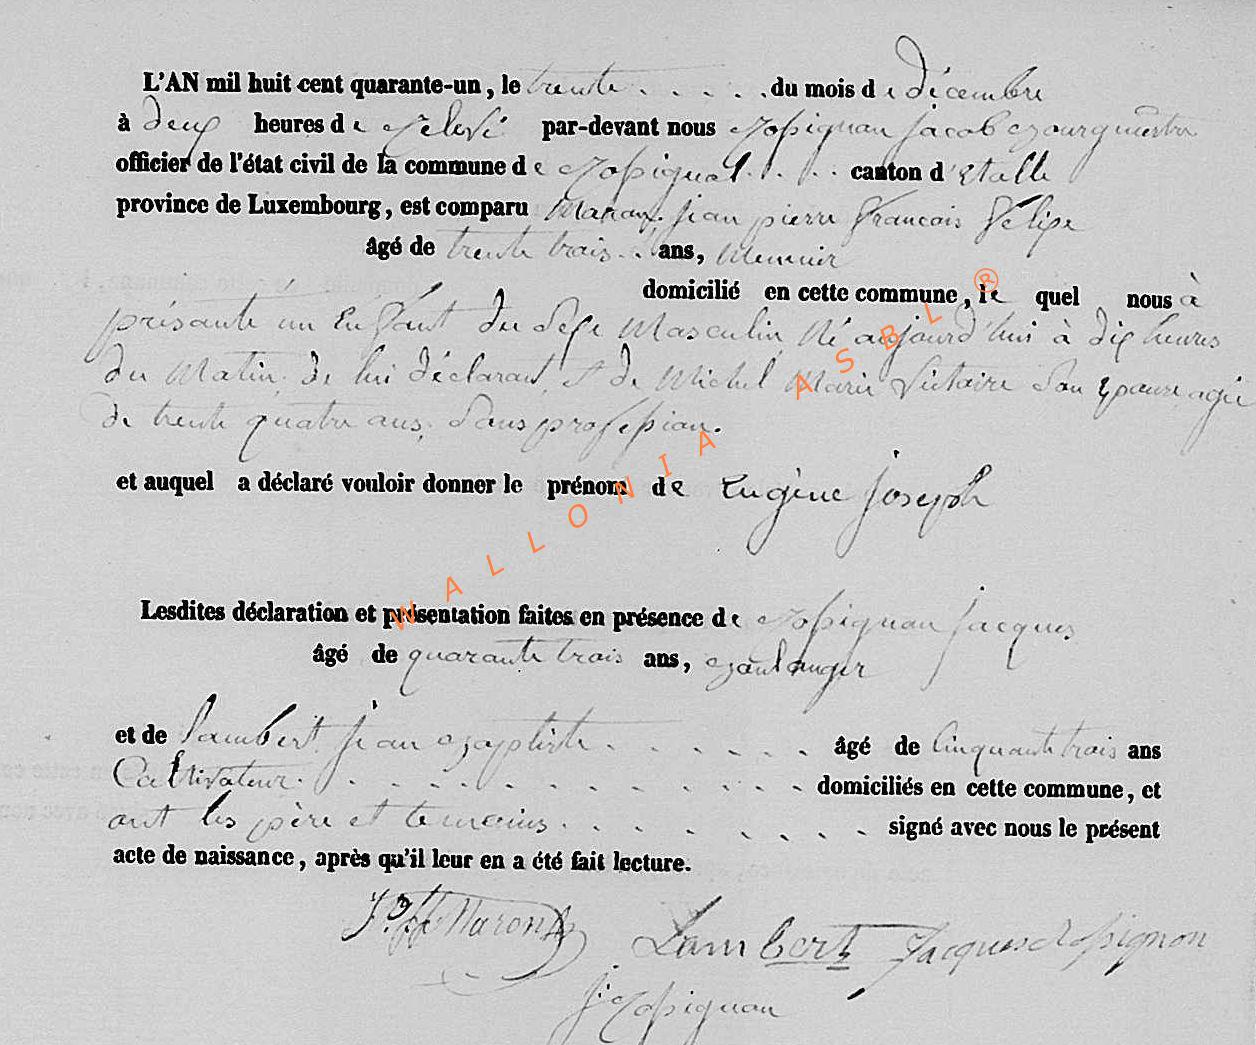 L'AN mil huit cent quarante-un, le trente . . . . . du mois de décembre
à deux heures de relevé par-devant nous Rossignon Jacob Bourgmestre
officier de l'état civil de la commune de Rossignol . . . . canton d'Etalle
province de Luxembourg, est comparu Maron, Jean pierre francois félixe
âgé de trente trois . . ans, Meunier
domicilié en cette commune, le quel nous à
présanté un Enfant du Sexe Masculin Né aujourd'hui à dix heures
du Matin de lui déclarant et de Michel Marie Victoire Son Epouse agée
de trente quatre ans, Sans profession.
et auquel a déclaré vouloir donner le prénom de Eugène Joseph
Lesdites déclaration et présentation faites en présence de Rossignon Jacques
âgé de quarante trois ans, Boulanger
et de Lambert Jean Baptiste . . . . . . âgé de Cinquante trois ans
Cultivateur . . . . . . . . . . . . domiciliés en cette commune, et
ont les père et temoins . . . . . . . . signé avec nous le présent
acte de naissance, après qu'il leur en a été fait lecture.
J. P. ff. Maron
Lambert Jacques Rossignon
J. Rossignon
WALLONIA ASBL ®